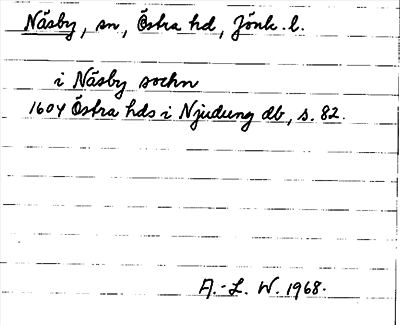 Näsby, sn, Östra hd, Jönk. l.
i Näsby sochn
1604 Östra hds i Njudung db, s. 82.
A.-L. W. 1968.